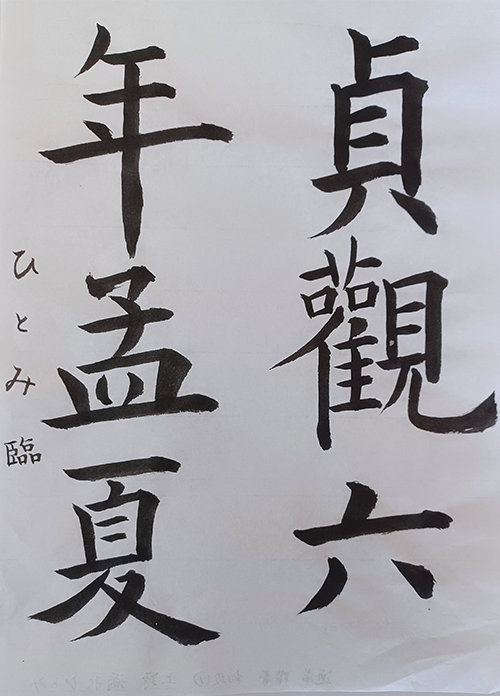 貞觀六
年孟夏
ひとみ臨